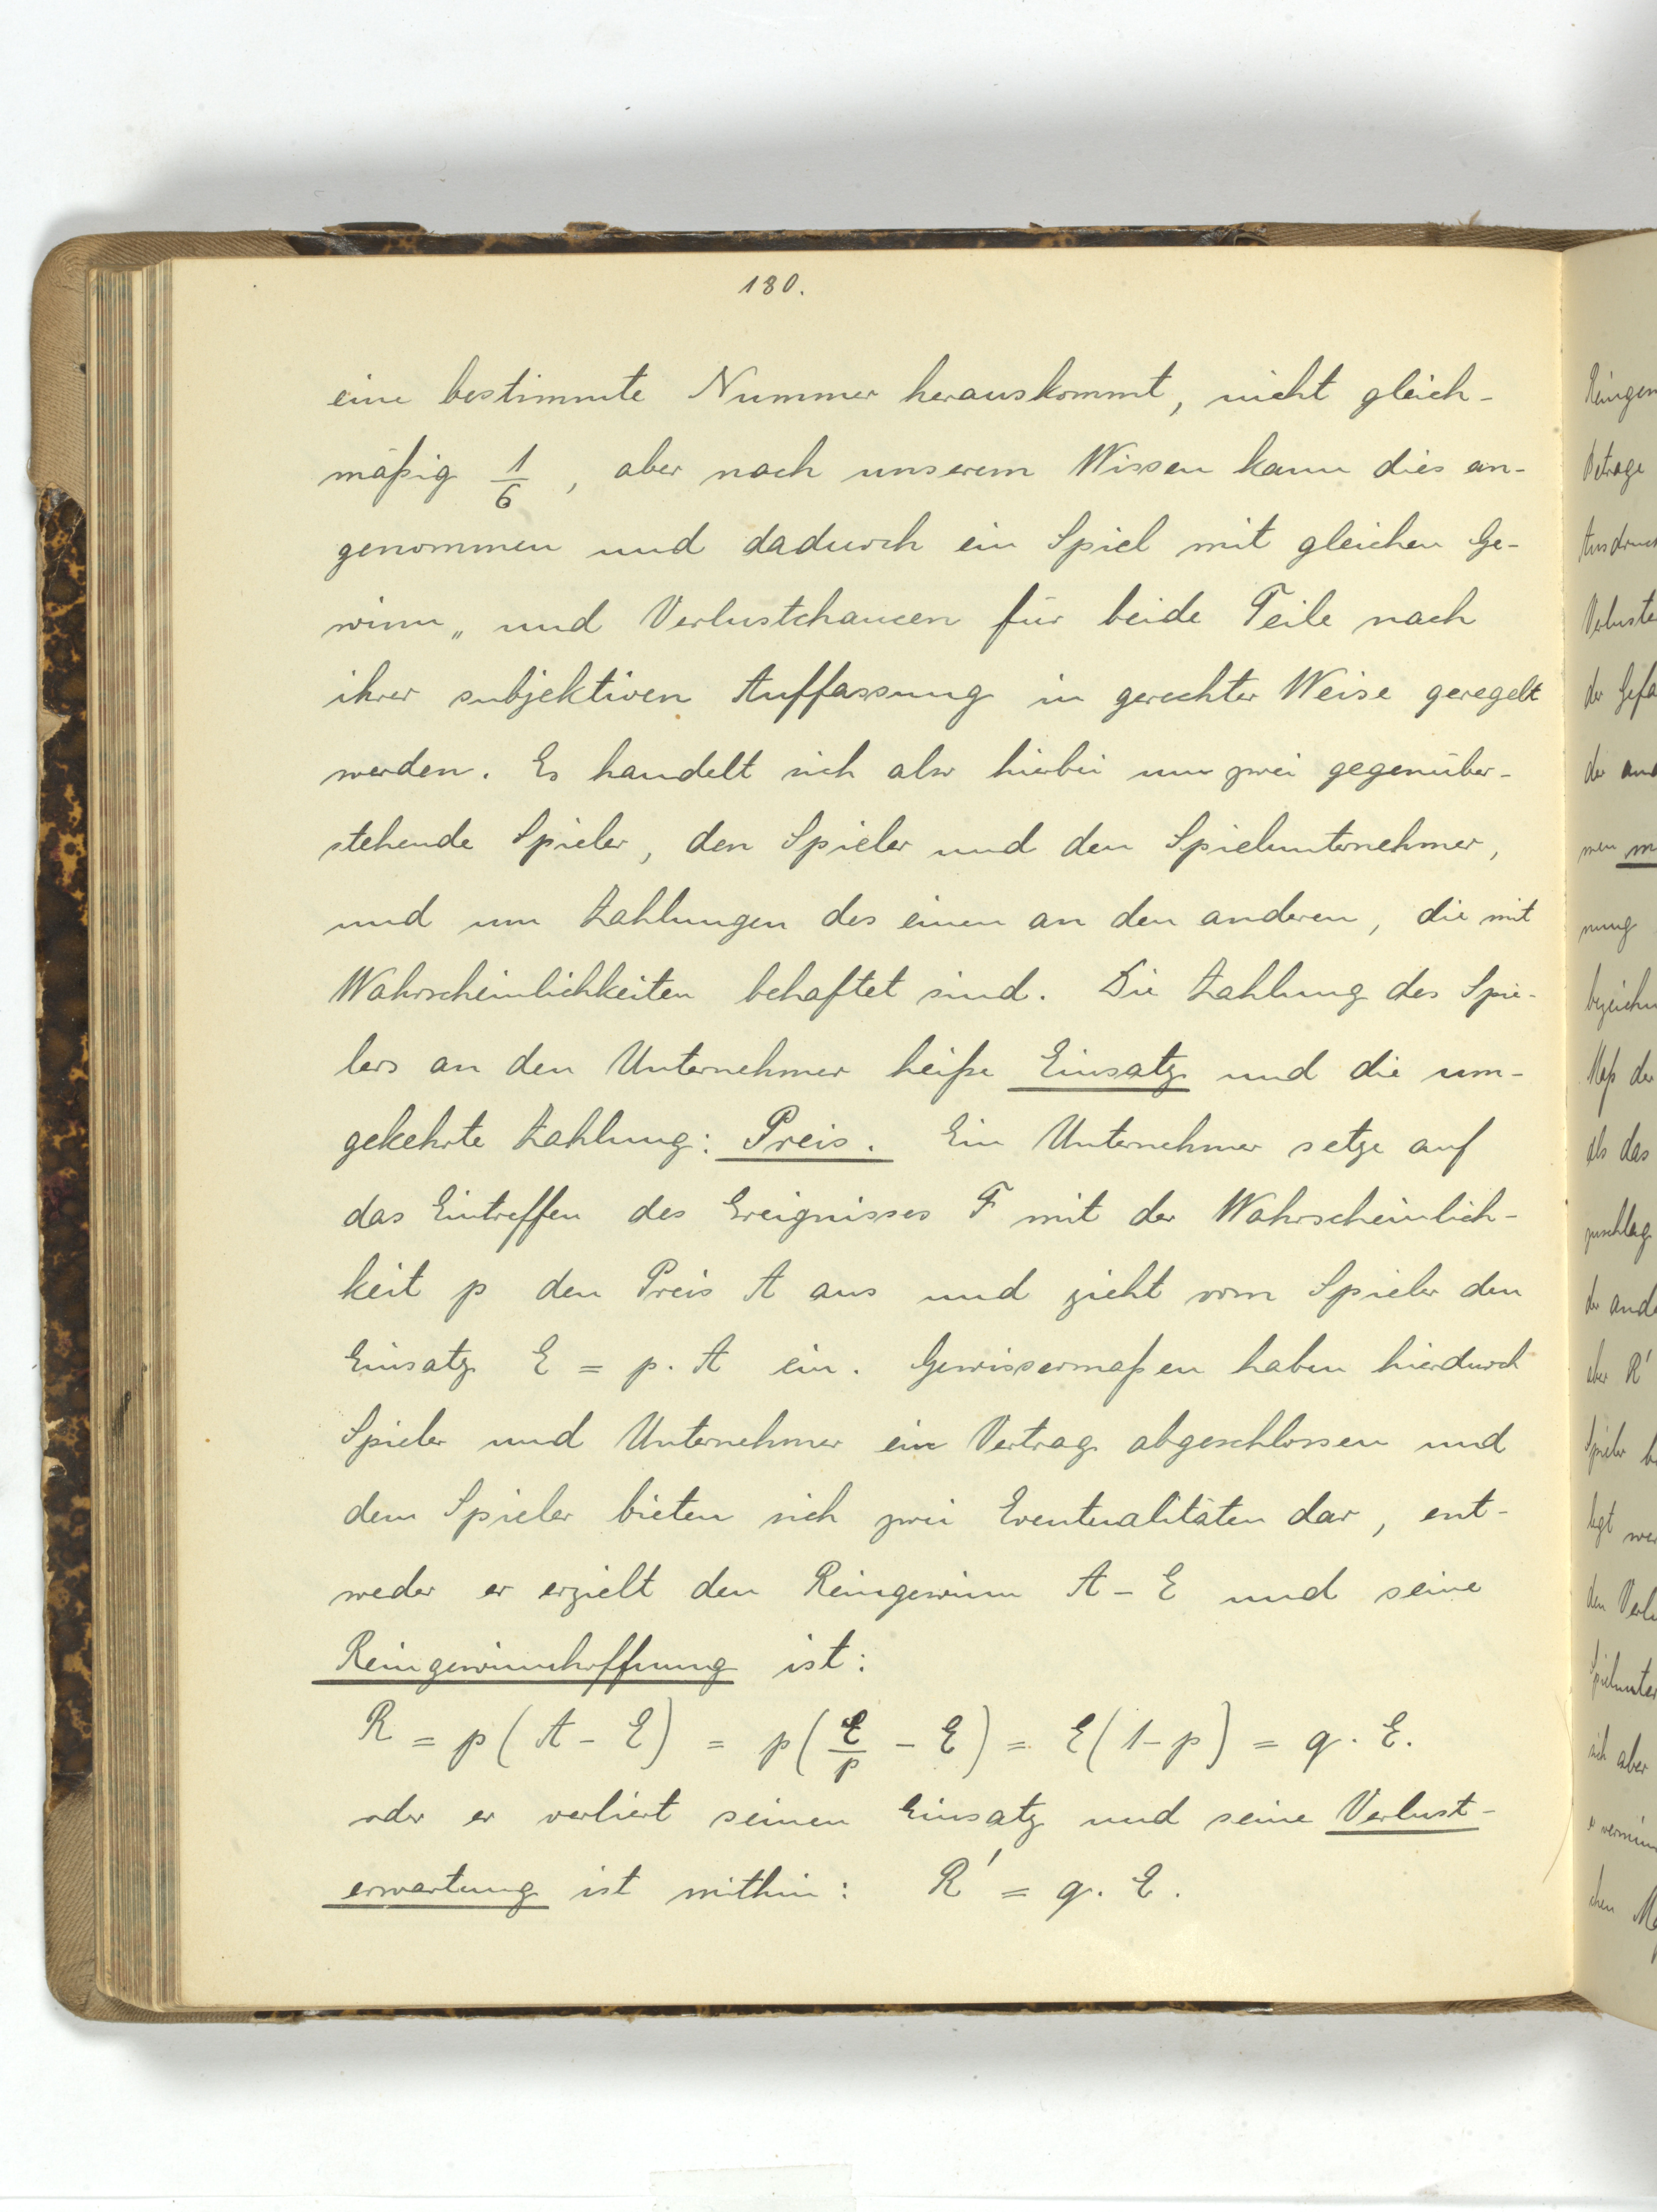 180.
eine bestimmte Nummer herauskommt, nicht gleich-
mäßig 1/6, aber nach unserem Wissen kann dies an-
genommen und dadurch ein Spiel mit gleichen Ge-
winn „ und Verlustchancen für beide Teile nach
ihrer subjektiven Auffassung in gerechter Weise geregelt
werden. Es handelt sich also hierbei um zwei gegenüber-
stehende Spieler, den Spieler und den Spielunternehmer,
und um Zahlungen des einen an den anderen, die mit
Wahrscheinlichkeiten behaftet sind. Die Zahlung des Spie-
lers an den Unternehmer heiße Einsatz und die um-
gekehrte Zahlung: Preis. Ein Unternehmer setze auf
das Eintreffen des Ereignisses F mit der Wahrscheinlich-
keit p den Preis A aus und zieht vom Spieler den
Einsatz E = p. A ein. Gewissermaßen haben hierdurch
Spieler und Unternehmer ein Vertrag abgeschlossen und
dem Spieler bieten sich zwei Eventualitäten dar, ent-
weder er erzielt den Reingewinn A - E und seine
Reingewinnhoffnung ist:
R = p(A - E) = p(E/p - E) = E(1-p) = q. E.
oder er verliert seinen Einsatz und seine Verlust-
erwartung ist mithin: R' = q. E.
Reingen
Betrage
Ausdruck
Verluste
der Gefa
der and
men
nung
bezeichn
Maß der
als das
zuschlag
der ande
aber R'
Spieler b
legt
den Verl
Spielunter
sich aber
chen